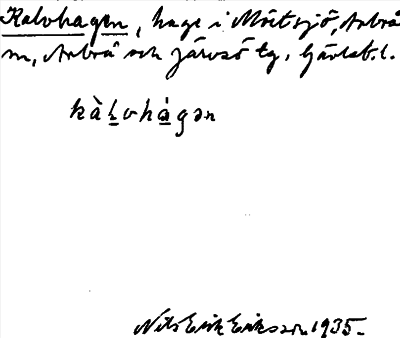 Kalvhagen, hage i Mörtsjö, Arbrå
sn, Arbrå och Järvsö tg, Gävleb. l.
kàḻvhá̱gən
Nils Erik Eriksson 1935.